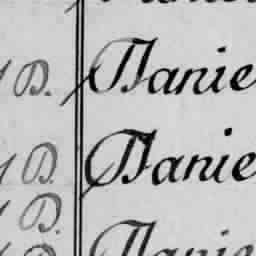 D. Danie
D. Danie
D.
Danie